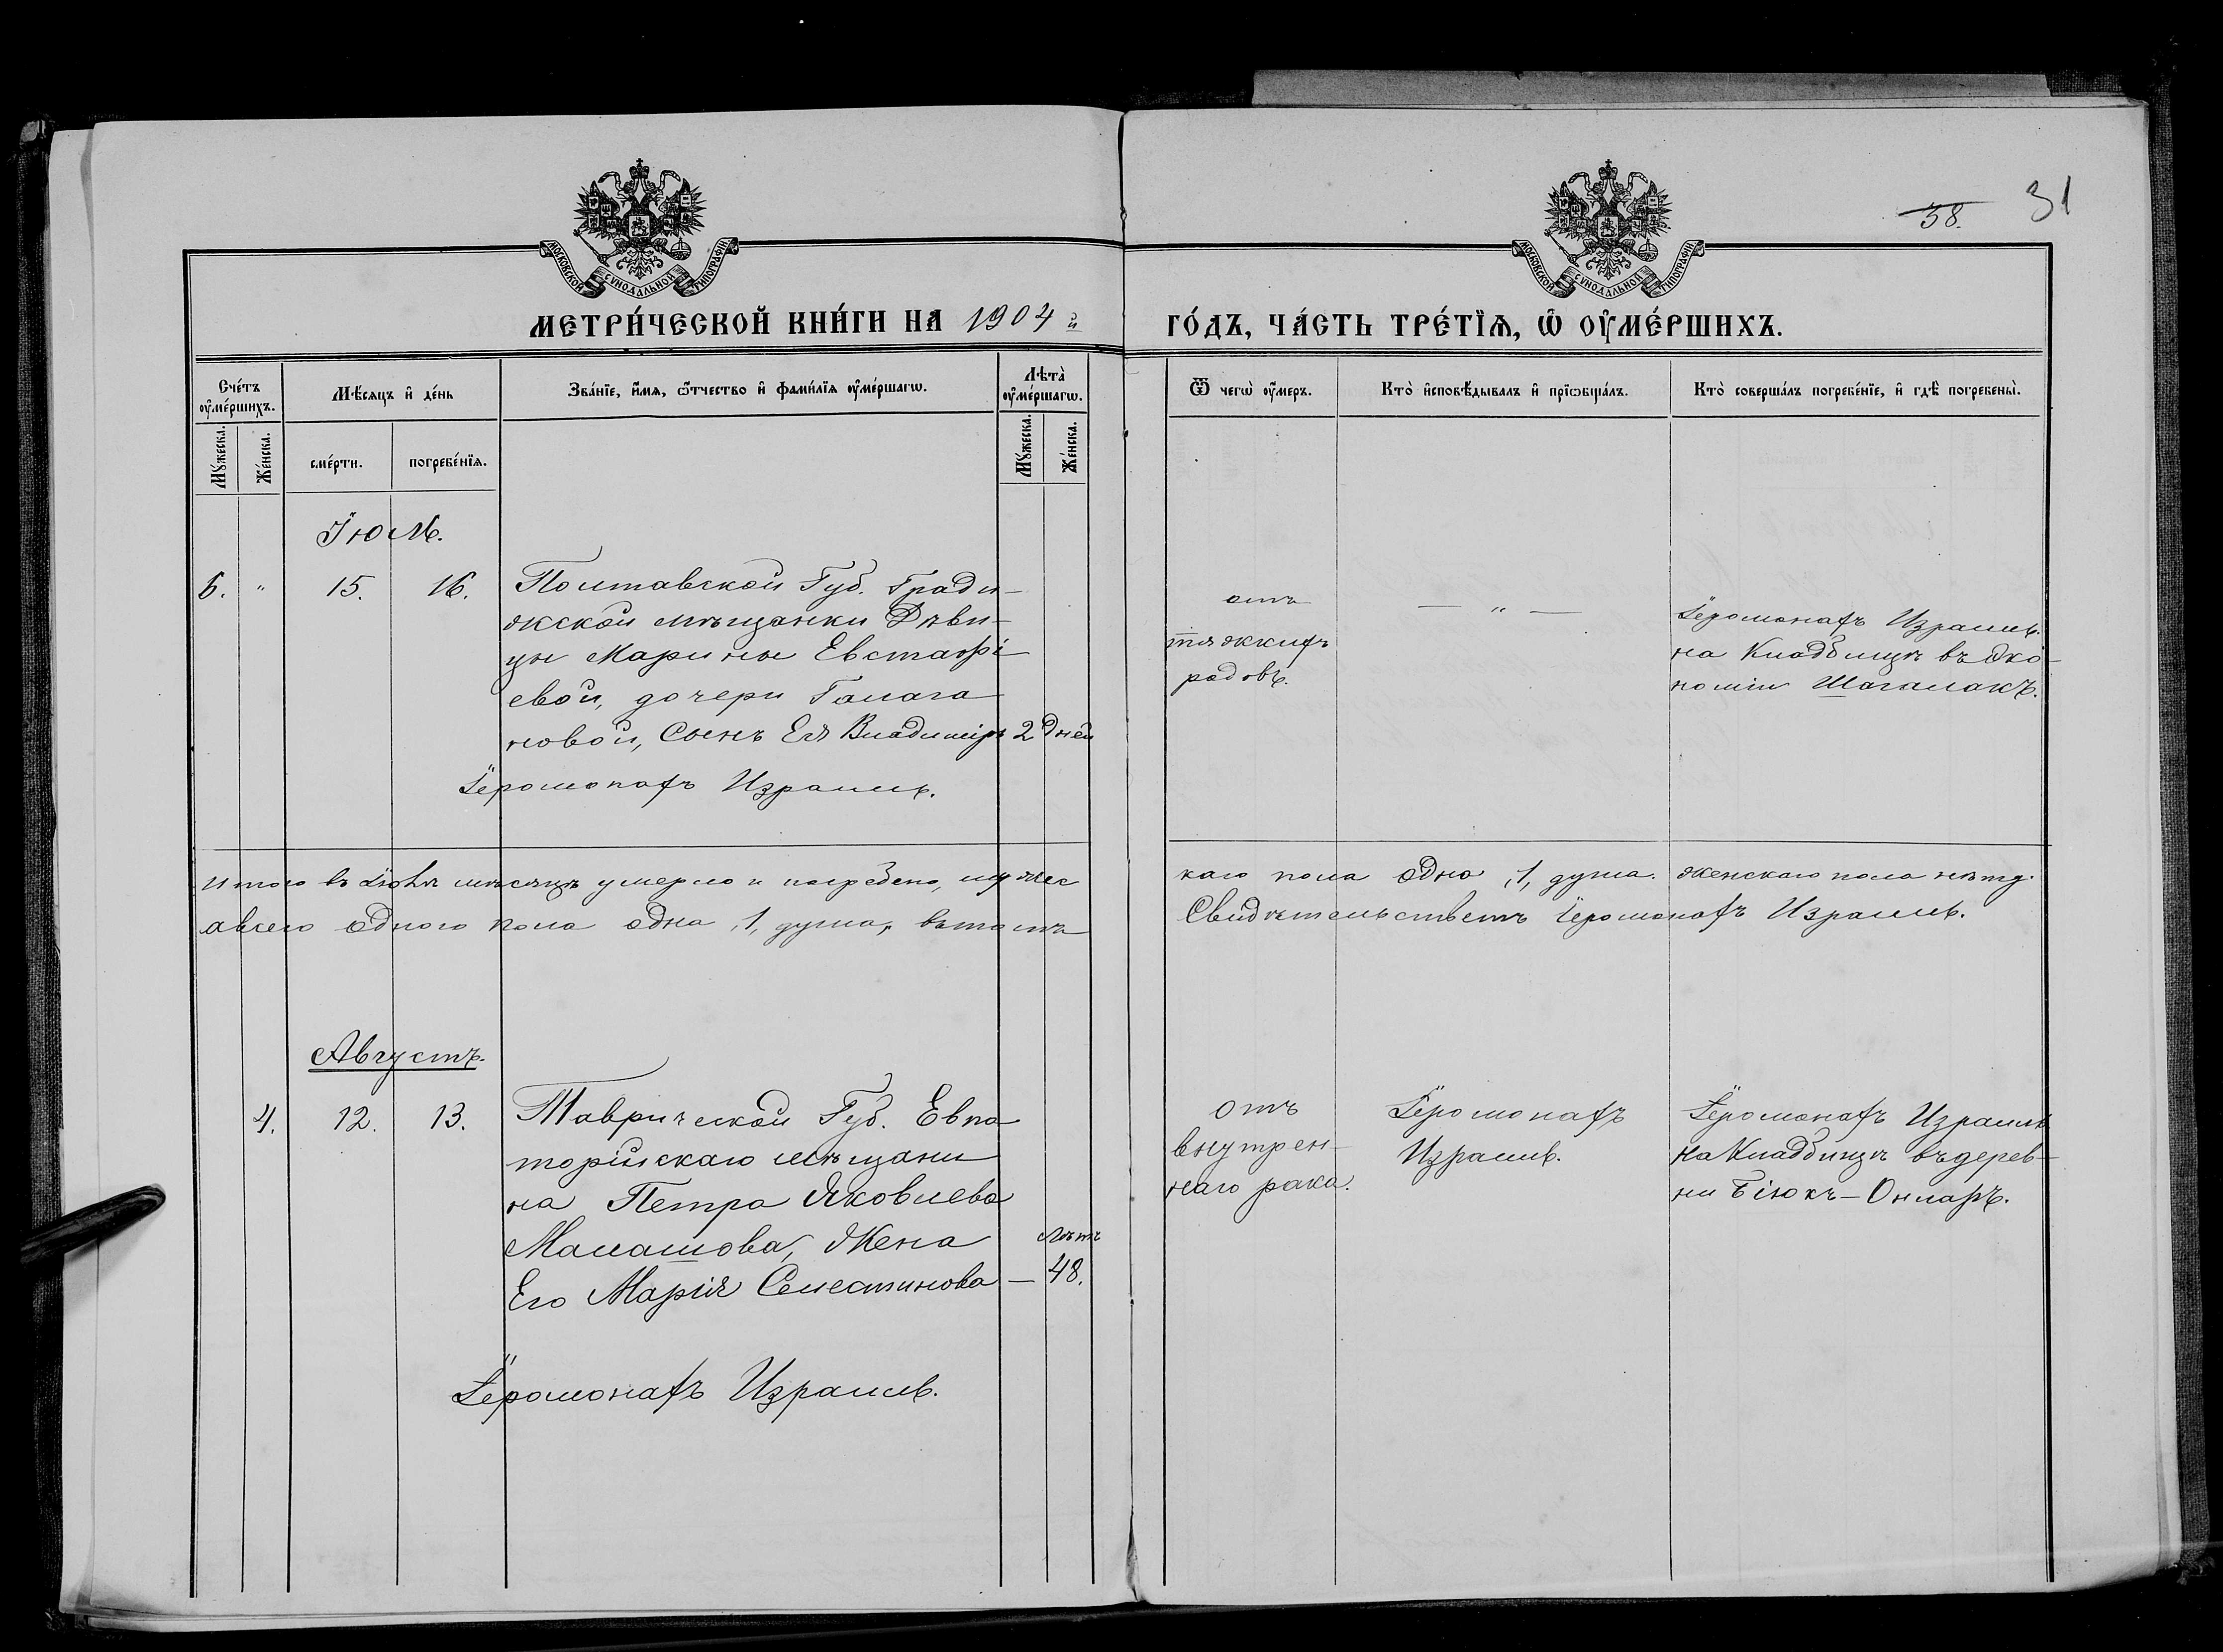 38. 31
МОСКОВСКОЙ СѴНОДАЛЬНОЙ ТИПОГРАФІИ
МОСКОВСКОЙ СѴНОДАЛЬНОЙ ТИПОГРАФІИ
МЕТРИ́ЧЕСКОЙ КНИ́ГИ НА 1904 й ГО́ДЪ, ЧА́СТЬ ТРЕ́ТЇѦ, Ѡ҆ ОУ҆МЕ́РШИХЪ.
Сче́тъ оу҆ме́ршихъ.
Му́жеска.
Же́нска.
Мѣ́сяцъ и҆ де́нь
сме́рти.
погребе́нїѧ.
Зва́нїе, и҆́мѧ, ѻ҆́тчество и҆ фами́лїѧ оу҆ме́ршагѡ.
Лѣта̀ оу҆ме́ршагѡ.
Му́жеска.
Же́нска.
Ѿ чегѡ̀ оу҆́меръ.
Кто̀ и҆сповѣ́дывалъ и҆ прїѡбща́лъ.
Кто̀ соверша́лъ погребе́нїе, и҆ гдѣ̀ погребены̀.
Їюль.
6. " 15. 16.
Полтавской Губ. Гради-
жской мѣщанки Дѣви-
цы Марины Евстафі
евой, дочери Галага
новой, Сынъ Ея Владиміръ 2 Дней
Іеромонахъ Израиль.
отъ
тяжкихъ
родовъ.
— " —
Іеромонахъ Израиль.
на Кладбищѣ въ Эко-
номіи Шагалакъ.
Итого въ Іюлѣ мѣсяцѣ умерло и погребено, мужес
каго пола одна ,1, душа. женскаго пола нѣтъ.
авсего одного пола одна ,1, душа, вътомъ
Свидѣтельстветъ Іеромонахъ Израиль.
Августъ.
4. 12. 13.
Таврической Губ. Евпа
торійскаго мѣщани
на Петра Яковлева
Малашова, Жена лѣтъ
Его Марія Селестинова — 48.
Іеромонахъ Израиль.
Отъ
внутрен-
наго рака.
Іеромонахъ
Израиль.
Іеромонахъ Израиль
На Кладбищѣ въдерев-
ни Біюкъ-Онларъ.